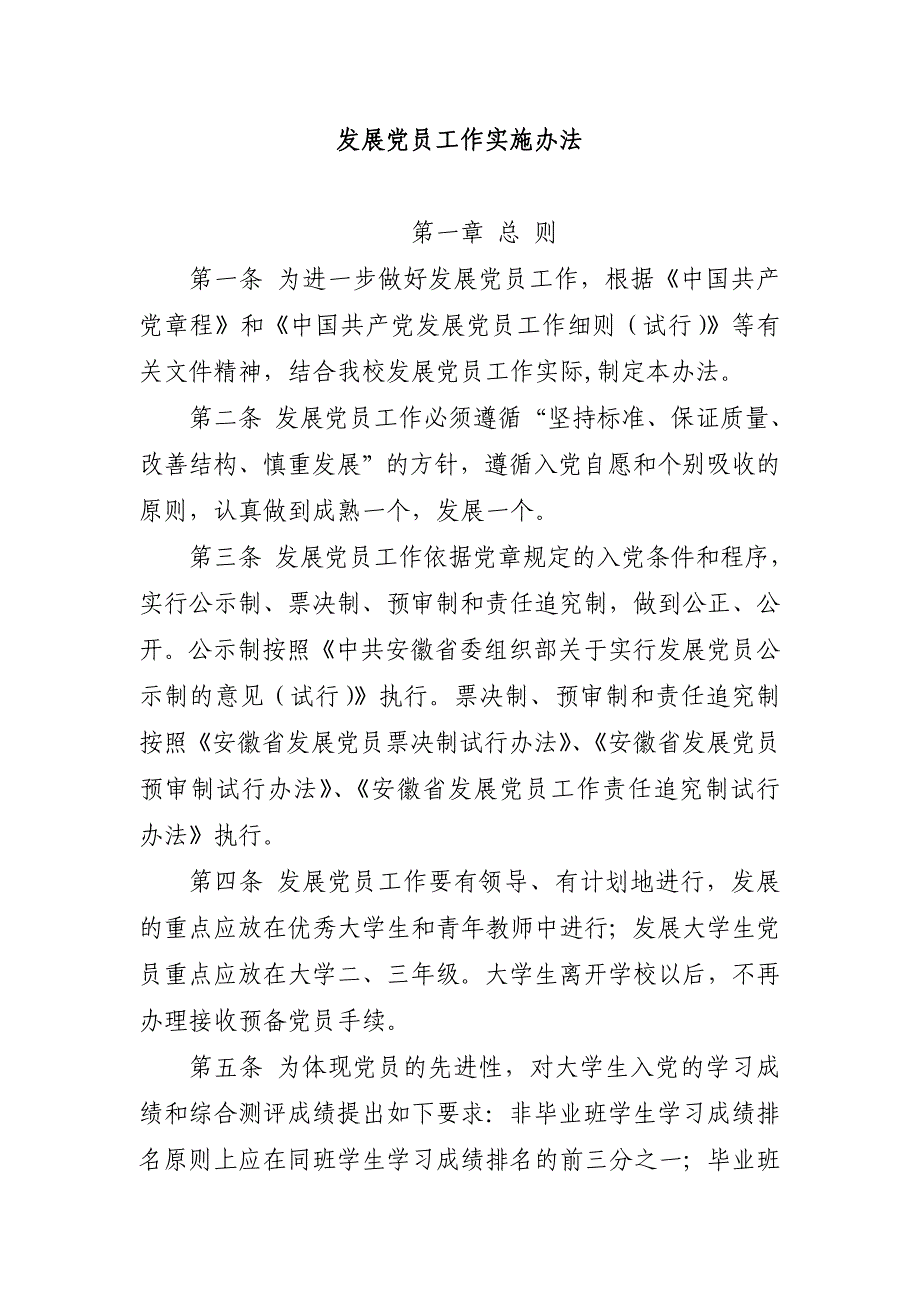 发展党员工作实施办法
第一章 总 则
第一条 为进一步做好发展党员工作，根据《中国共产
党章程》和《中国共产党发展党员工作细则（试行）》等有
关文件精神，结合我校发展党员工作实际,制定本办法。
第二条 发展党员工作必须遵循“坚持标准、保证质量、
改善结构、慎重发展”的方针，遵循入党自愿和个别吸收的
原则，认真做到成熟一个，发展一个。
第三条 发展党员工作依据党章规定的入党条件和程序，
实行公示制、票决制、预审制和责任追究制，做到公正、公
开。公示制按照《中共安徽省委组织部关于实行发展党员公
示制的意见（试行）》执行。票决制、预审制和责任追究制
按照《安徽省发展党员票决制试行办法》、《安徽省发展党员
预审制试行办法》、《安徽省发展党员工作责任追究制试行
办法》执行。
第四条 发展党员工作要有领导、有计划地进行，发展
的重点应放在优秀大学生和青年教师中进行；发展大学生党
员重点应放在大学二、三年级。大学生离开学校以后，不再
办理接收预备党员手续。
第五条 为体现党员的先进性，对大学生入党的学习成
绩和综合测评成绩提出如下要求：非毕业班学生学习成绩排
名原则上应在同班学生学习成绩排名的前三分之一；毕业班